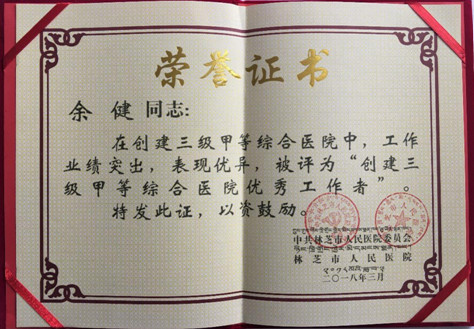 荣誉证书
余 健 同志：
在创建三级甲等综合医院中，工作
业绩突出，表现优异，被评为“创建三
级甲等综合医院优秀工作者”。
特发此证，以资鼓励。
中共林芝市人民医院委员会
林芝市人民医院
二〇一八年三月